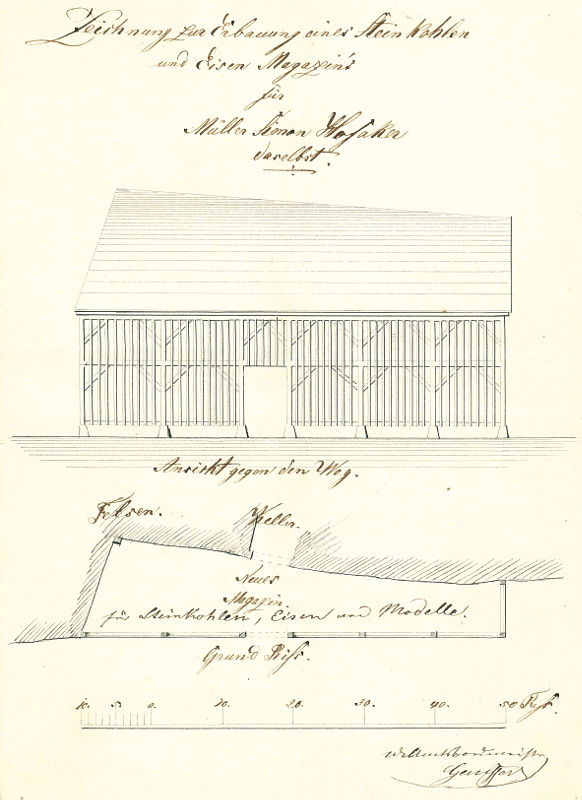 Zeichnung zur Erbauung eines Steinkohlen
und Eisen Magazin's
für
Müller Simon
daselbst.
Ansicht gegen den Weg.
Felsen. Keller.
Neues
Magazin
für Steinkohlen, Eisen und Modelle.
Grund Riss.
10. 5. 0. 10. 20. 30. 40. 50 Fuß.